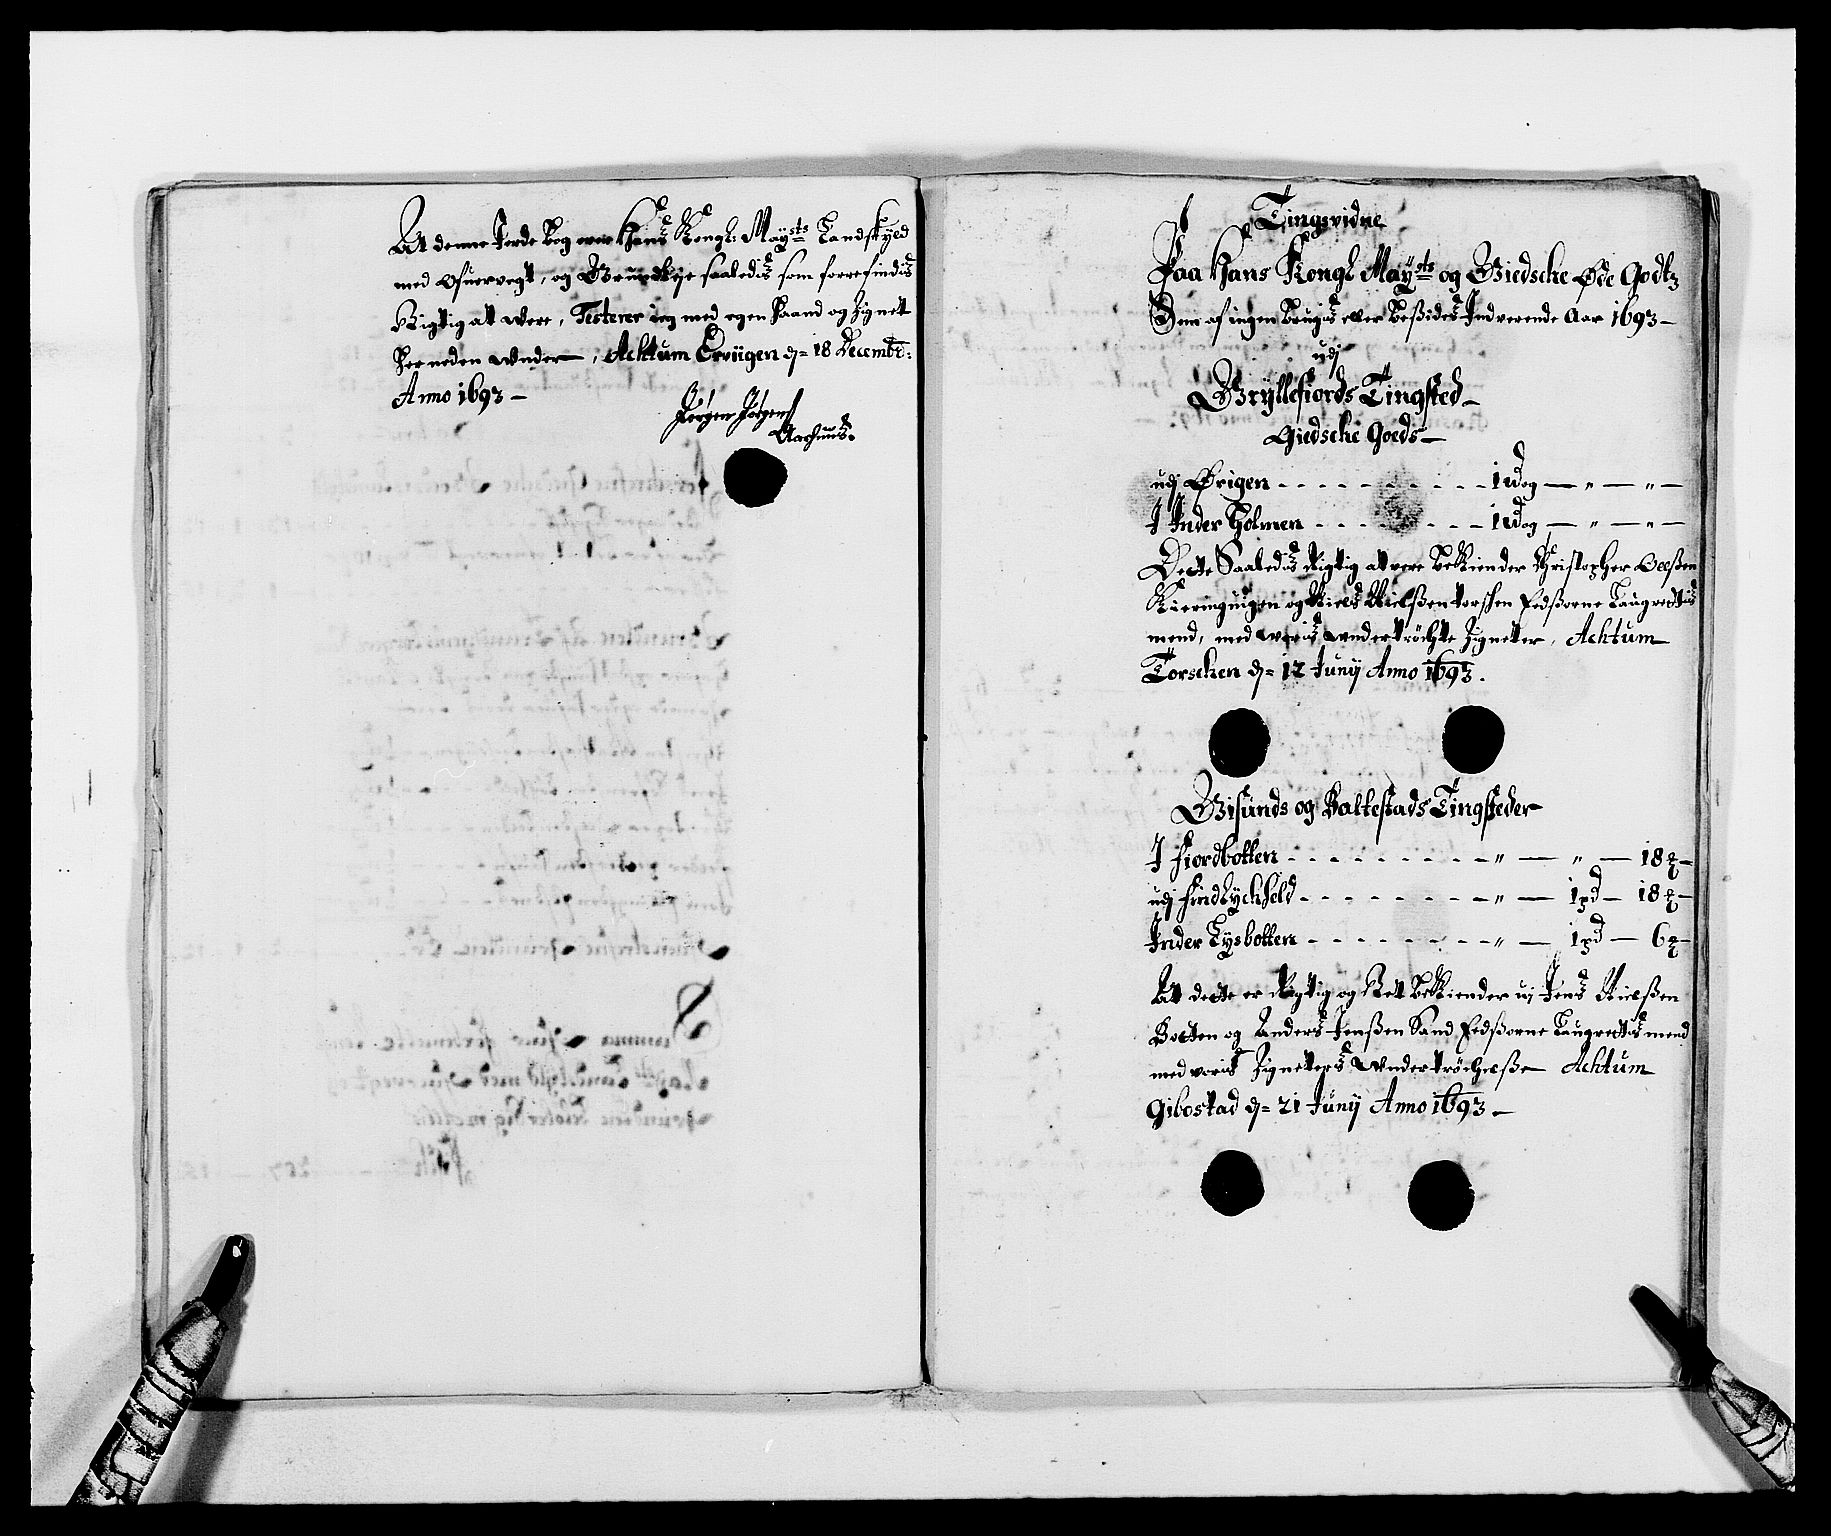 At denne Jorde bog over Hans Kongl: Maysts Landskyld
med Ofuervegt, og Grundleje saaledis som forefindis
Rigtig at were, Testerer ieg med egen Haand og Zignett
her neden under, Achtum Ervigen dn= 18 Decembr:
Anno 1693 –
Jørgen Jørgens
Aarhuus.
Tingsvidne
Paa Hans Kongl Maysts og Giedsche Øde Godtz
Som af ingen brugis eller beßides Indverende Aar 1693 –
udj
Gryllefiords Tingsted –
Giedsche Goeds –
udj Ørigen - - - - - - - - - - 1 Wog — „ — „ —
J Inder Holmen - - - - - - - - 1 Wog — „ — „ —
Dette Saaledis Rigtig at vere bekiender Christopher Oelßen
Kieringuigen og Niels Nielßen torschen Eedsorne Laugrettis
mend, med woris undertröchte Zigneter, Achtum
Torschen dn= 12 Junij Anno 1693.
Gisunds og Baltestads Tingsteder
J Fiordbotten - - - - - - - - - „ — „ — 18 ℔ –
udj FindLyckheld - - - - - - - - „ — 1 pd — 18 ℔ –
Inder Lysbotten - - - - - - - - „ — 1 pd — 6 ℔ –
At dette er Rigtig og Ret bekiender wj Jens Nielßen
Botten og Anders Jenßen Sand Eedsorne Laugrettis mend
med voris Zigneters Undertröchelße Achtum
Gibostad dn= 21 Junij Anno 1693 –